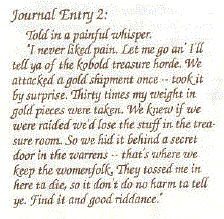 Journal Entry 2:
Told in a painful whisper.
"I never liked pain. Let me go an' I'll
tell ya of the kobold treasure horde. We
attacked a gold shipment once -- took it
by surprise. Thirty times my weight in
gold pieces were taken. We knew if we
were raided we'd lose the stuff in the trea-
sure room. So we hid it behind a secret
door in the warrens -- that's where we
keep the womenfolk. They tossed me in
here ta die, so it don't do no harm ta tell
ye. Find it and good riddance."